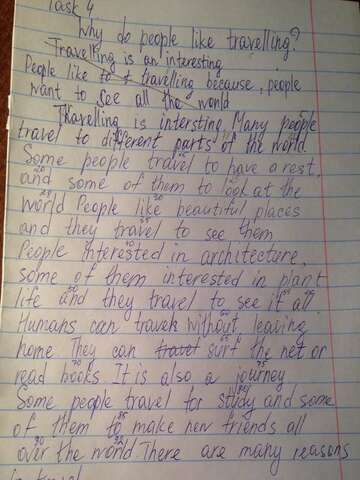 Task 4
Why do people like travelling?
Travelling is an interesting
People like to travelling because, people
want to see all the world
Travelling is intersting. Many people
travel to different parts of the world.
Some people travel to have a rest,
and some of them to look at the
world People like beautiful places
and they travel to see them
People interested in architecture,
some of them interested in plant
life and they travel to see it all.
Humans can travel without leaving
home They can travel surf the net or
read books. It is also a journey
Some people travel for study and some
of them to make new friends all
over the world There are many reasons
to travel